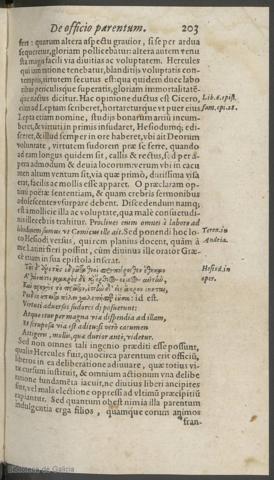 De officio parentum. 203
fert: quarum altera aspectu grauior, si se per ardua
sequeretur, gloriam pollicebatur: altera autem tenui
sta magis facili via diuitias ac voluptatem. Hercules
qui iam ratione tenebatur, blanditijs voluptatis con-
temptis, virtutem secutus est: qua quidem duce labo
ribus periculisque superatis, gloriam immortalitaté-
que nactus dicitur. Hac opinione ductus est Cicero,
cùm ad Leptam scriberet, hortareturque vt puer eius
Lepta etiam nomine, studijs bonarum artiũ incum-
beret, & virtuti in primis insudaret, Hesiodumq; edi-
sceret, & illud semper in ore haberet, vbi ait Deorum
voluntate, virtutem sudorem præ se ferre, quando
ad eam longus quidem sit, callis & rectus,
admodum & deuia locorum: verum vbi in cacu
men altum ventum sit, via quæ primò, durissima visa
erat, facilis ac mollis esse apparet. O præclaram op-
timi poëtæ sententiam, & quam crebris sermonibus
adolescentes vsurpare debent. Discedendum namq;
est à mollicie illa ac voluptate, qua malè consuetudi-
nis illecebris trahitur. Procliues enim omnes à labore ad
libidinem sumus: vt Comicus ille ait. Sed ponendi hoc lo-
co Hesiodi versus, qui rem planius docent, quàm à
Latini fieri possint, cùm diuinus ille orator Græ-
cè eum in sua epistola inserat.
Lib. 6. epist.
fam. epi. 18.
Teren. in
Andria.
Hesiod. in
oper.
id est.
Virtuti aduersus sudorem dij posuerunt:
Atque itur per magna via dispendia ad illam,
Est scruposa via est aditusq; verò carumen
Attigeris, mollis, quæ durior antè, videtur.
Sed non omnes tali ingenio præditi esse possunt,
qualis Hercules fuit, quocirca parentum erit officiũ,
liberos in ea deliberatione adiuuare, quæ totius vi-
tæ cursum instituit, & omnium actionum vna delibe
ratione fundamẽta iacit, ne diutius liberi ancipites
sint, vel mala electione oppressi ad vltimũ præcipitiũ
rapiantur. Sed quantum obest nimia illa parentum
indulgentia erga filios, quamque eorum animos
fran-
Biblioteca de Galicia